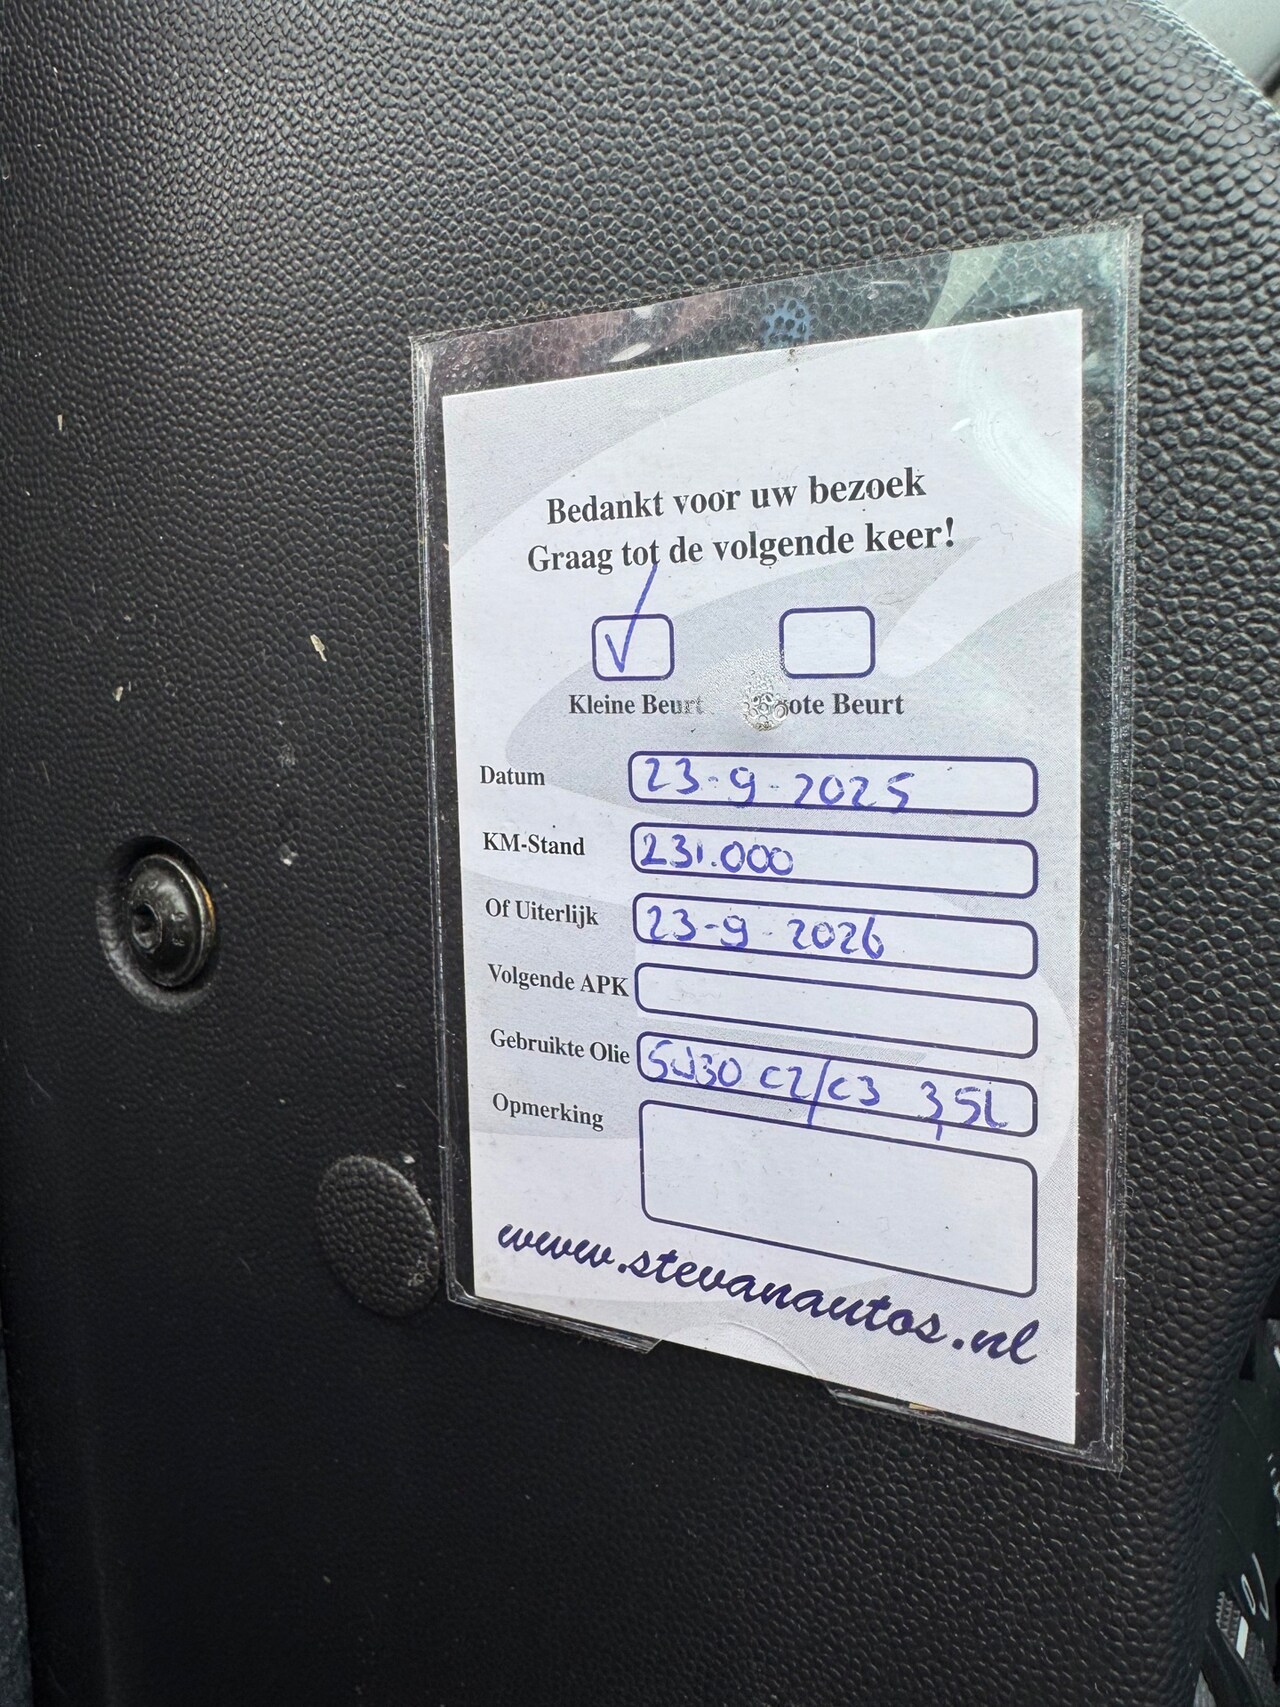 Bedankt voor uw bezoek
Graag tot de volgende keer!
Kleine Beurt Beurt
Datum 23-9-2025
KM-Stand 231.000
Of Uiterlijk 23-9-2026
Volgende APK
Gebruikte Olie 5W30 C2/C3 3,5L
Opmerking
www.stevanautos.nl